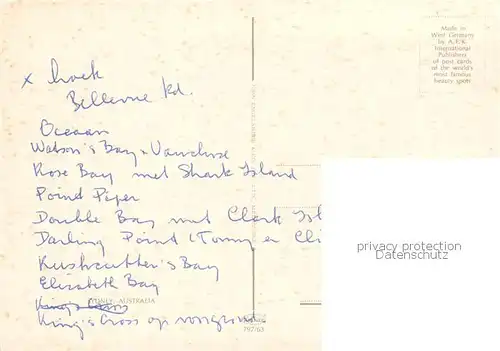 x hoek
Bellevue Rd.
Oceaan
Watson's Bay + Vaucluse
Rose Bay met Shark Island
Point Piper
Double Bay met Clark Isl
Darling Point (Tommy en Cli
Rushcutter's Bay
Elizabeth Bay
SYDNEY, AUSTRALIA
King's Cross
King's Cross op voorgrond
797/63
Made in
West Germany
by A.F.K.
International
Publishers
of post cards
of the world's
most famous
beauty spots
privacy protection
Datenschutz